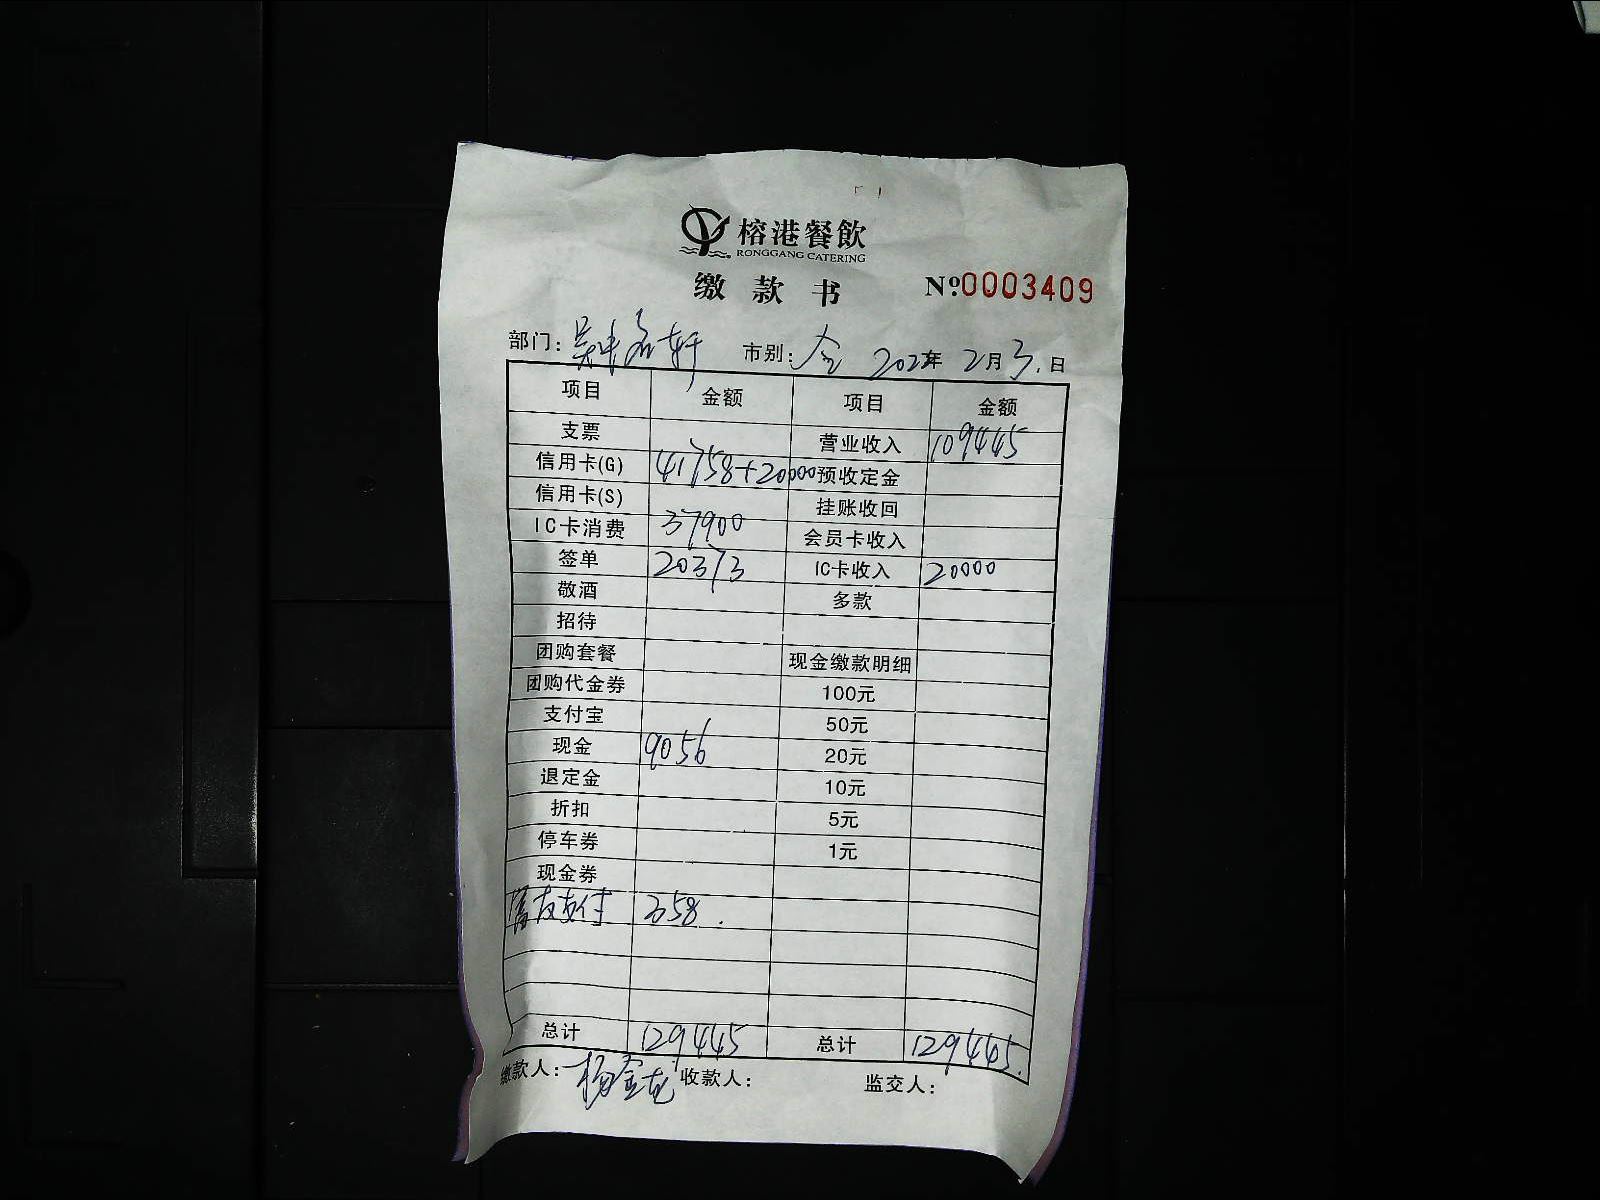 榕港餐飲
RONGGANG CATERING
缴款书 №0003409
部门: 市别: 全 2022年 2月3日
项目 金额 项目 金额
支票 营业收入 109445
信用卡(G) 41758+20000 预收定金
信用卡(S) 挂账收回
IC卡消费 37900 会员卡收入
签单 20373 IC卡收入 20000
敬酒 多款
招待
团购套餐 现金缴款明细
团购代金券 100元
支付宝 50元
现金 9056 20元
退定金 10元
折扣 5元
停车券 1元
现金券
富友支付 358.
总计 129445 总计 129445.
缴款人: 杨金龙 收款人: 监交人: